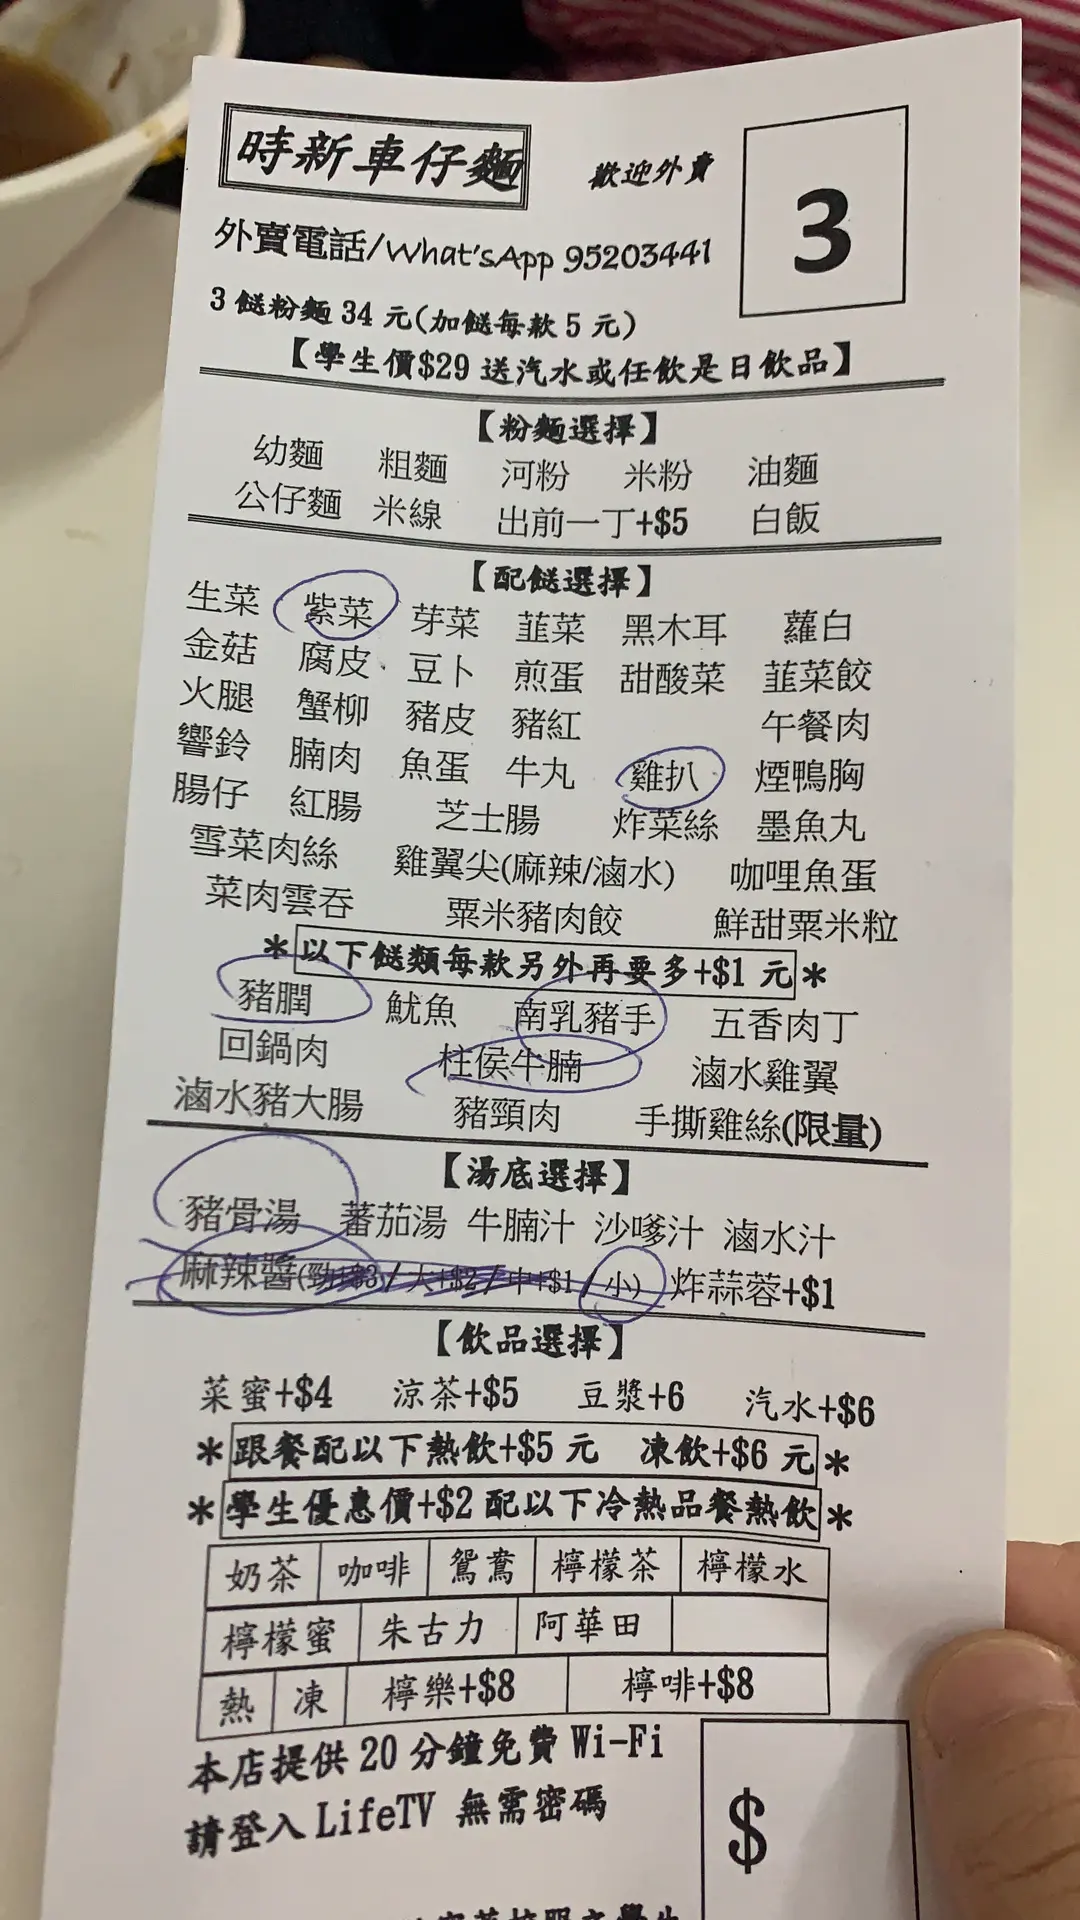 時新車仔麵 歡迎外賣
3
外賣電話/What'sApp 95203441
3 餸粉麵 34 元(加餸每款 5 元)
【學生價$29 送汽水或任飲是日飲品】
【粉麵選擇】
幼麵 粗麵 河粉 米粉 油麵
公仔麵 米線 出前一丁+$5 白飯
【配餸選擇】
生菜 紫菜 芽菜 韮菜 黑木耳 蘿白
金菇 腐皮 豆卜 煎蛋 甜酸菜 韮菜餃
火腿 蟹柳 豬皮 豬紅 午餐肉
響鈴 腩肉 魚蛋 牛丸 雞扒 煙鴨胸
腸仔 紅腸 芝士腸 炸菜絲 墨魚丸
雪菜肉絲 雞翼尖(麻辣/滷水) 咖哩魚蛋
菜肉雲吞 粟米豬肉餃 鮮甜粟米粒
*以下餸類每款另外再要多+$1 元*
豬膶 魷魚 南乳豬手 五香肉丁
回鍋肉 柱侯牛腩 滷水雞翼
滷水豬大腸 豬頸肉 手撕雞絲(限量)
【湯底選擇】
豬骨湯 蕃茄湯 牛腩汁 沙嗲汁 滷水汁
麻辣醬(勁+$3/大+$2/中+$1/小) 炸蒜蓉+$1
【飲品選擇】
菜蜜+$4 涼茶+$5 豆漿+6 汽水+$6
*跟餐配以下熱飲+$5 元 凍飲+$6 元*
*學生優惠價+$2 配以下冷熱品餐熱飲*
奶茶 咖啡 鴛鴦 檸檬茶 檸檬水
檸檬蜜 朱古力 阿華田
熱 凍 檸樂+$8 檸啡+$8
本店提供 20 分鐘免費 Wi-Fi
請登入 LifeTV 無需密碼
$